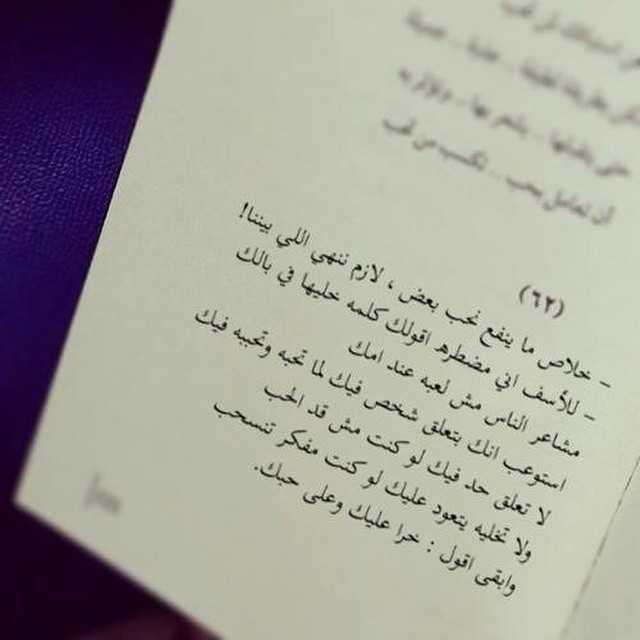 أن تعامل بحب .. تكسب من تحب
(٦٢)
– خلاص ما ينفع نحب بعض ، لازم ننهي اللي بيننا!
– للأسف اني مضطره اقولك كلمه خليها في بالك
مشاعر الناس مش لعبه عند امك
استوعب انك يتعلق شخص فيك لما تحبه وتحببه فيك
لا تعلق حد فيك لو كنت مش قد الحب
ولا تخليه يتعود عليك لو كنت مفكر تنسحب
وابقى اقول : خرا عليك وعلى حبك.